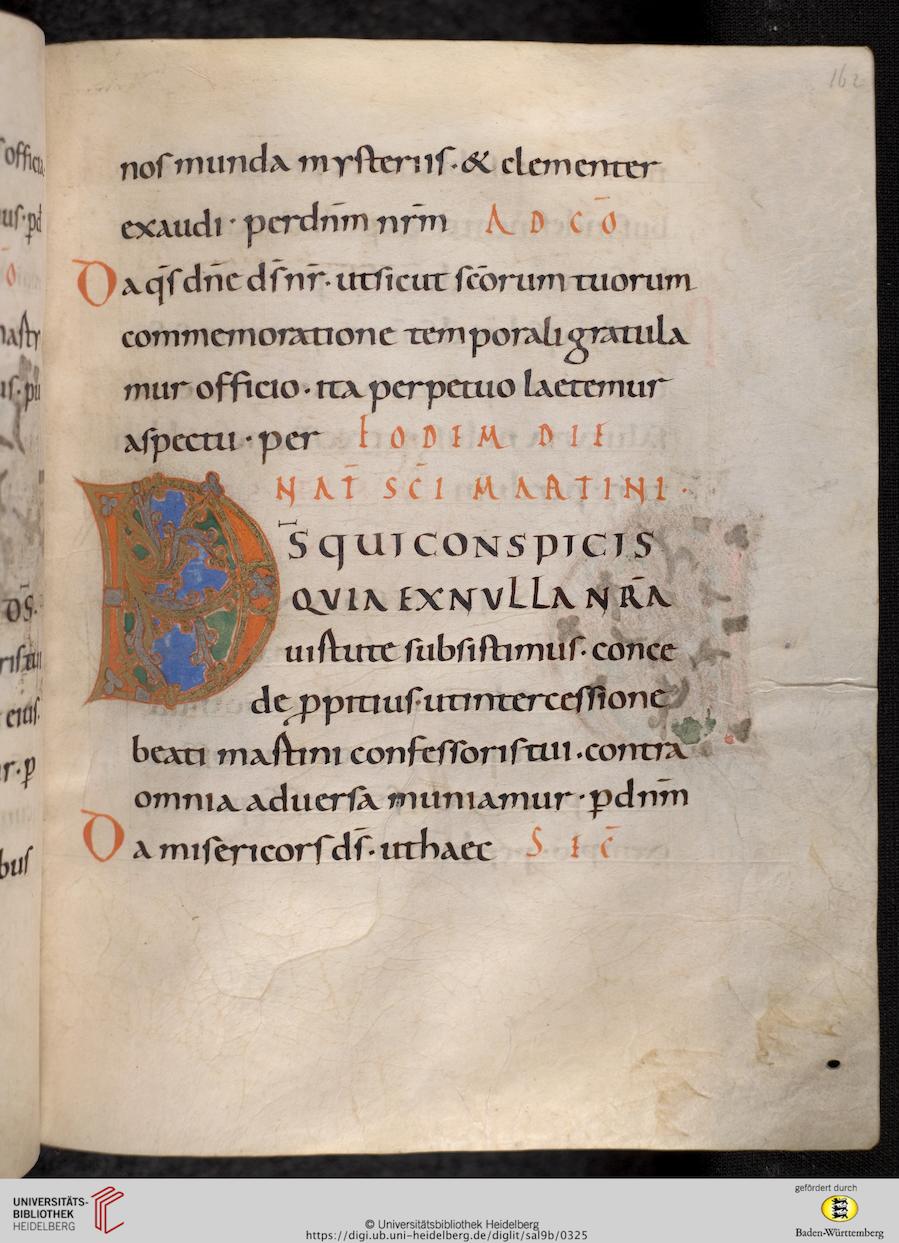 162
nos munda mysteriis · & clementer
exaudi · per dnm̄ nrm̄ AD CŌ
Da qs̄ dnē ds̄ nr̄ · ut sicut sc̄orum tuorum
commemoratione temporali gratula
mur officio · ita perpetuo laetemur
aspectu · per EODEM DIE
NAT̄ SC̄I MARTINI ·
D S̄ QUI CONSPICIS
QVIA EX NVLLA NR̄A
uirtute subsistimus · conce
de ꝓpitius · ut intercessione
beati martini confessoris tui · contra
omnia aduersa muniamur · ꝑ dnm̄
Da misericors ds̄ · ut haec SEC̄
UNIVERSITÄTS-
BIBLIOTHEK
HEIDELBERG
© Universitätsbibliothek Heidelberg
https://digi.ub.uni-heidelberg.de/diglit/sal9b/0325
gefördert durch
Baden-Württemberg